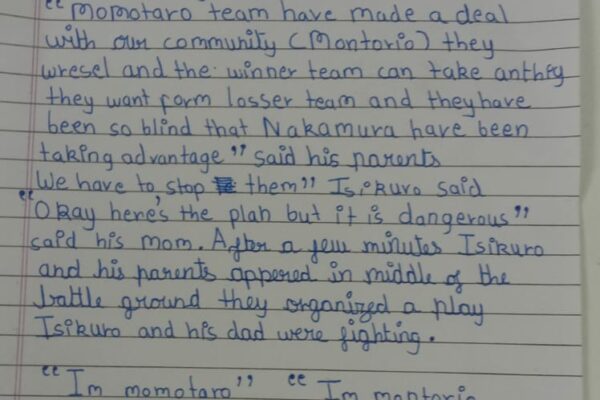 “Momotaro team have made a deal
with our community (Montorio) they
wresel and the winner team can take anthing
they want form losser team and they have
been so blind that Nakamura have been
taking advantage” said his parents
We have to stop them” Isikuro said
“Okay here's the plan but it is dangerous”
said his mom. After a few minutes Isikuro
and his parents appered in middle of the
battle ground they organized a play
Isikuro and his dad were fighting.
“Im momotaro” “Im montorio